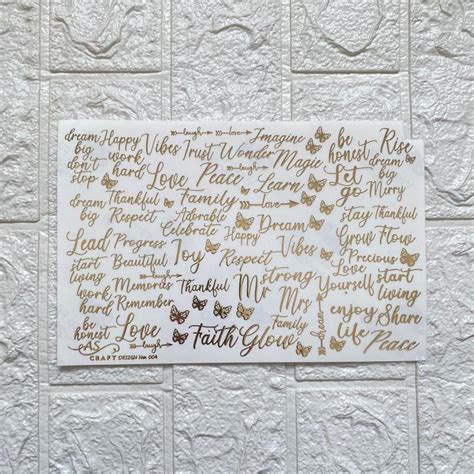 dream Happy Vibes laugh love Imagine be Rise
big Trust Wonder Magic honest dream
don't work big
stop hard Love Peace Learn Let go Merry
dream Thankful Family love
big Respect Adorable stay Thankful
Celebrate Happy Dream
Lead Progress Joy Respect Vibes Grow Flow
start Beautiful Precious
living laugh Love start
Memories Thankful Mr strong Yourself living
work Mrs
hard Remember enjoy Share
be Love Family dream life
honest laugh Faith Glow Peace
AS
CRAFT DESIGN